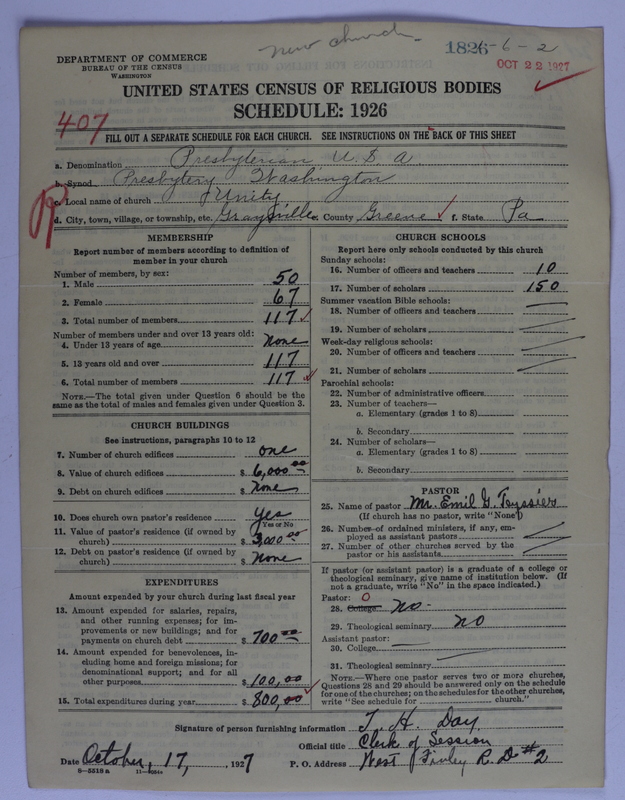 new church
1826-6-2
OCT 22 1927
DEPARTMENT OF COMMERCE
BUREAU OF THE CENSUS
WASHINGTON
UNITED STATES CENSUS OF RELIGIOUS BODIES
SCHEDULE: 1926
407
FILL OUT A SEPARATE SCHEDULE FOR EACH CHURCH. SEE INSTRUCTIONS ON THE BACK OF THIS SHEET
a. Denomination Presbyterian U.S.A
b. Synod Presbytery Washington
c. Local name of church Unity
d. City, town, village, or township, etc. Graysville e. County Greene f. State Pa
MEMBERSHIP
Report number of members according to definition of
member in your church
Number of members, by sex:
1. Male 50
2. Female 67
3. Total number of members 117
Number of members under and over 13 years old:
4. Under 13 years of age None
5. 13 years old and over 117
6. Total number of members 117
NOTE.—The total given under Question 6 should be the
same as the total of males and females given under Question 3.
CHURCH BUILDINGS
See instructions, paragraphs 10 to 12
7. Number of church edifices one
8. Value of church edifices $ 6,000.00
9. Debt on church edifices $ None
10. Does church own pastor's residence Yes
Yes or No
11. Value of pastor's residence (if owned by
church) $ 3,000.00
12. Debt on pastor's residence (if owned by
church) $ None
EXPENDITURES
Amount expended by your church during last fiscal year
13. Amount expended for salaries, repairs,
and other running expenses; for im-
provements or new buildings; and for
payments on church debt $ 700.00
14. Amount expended for benevolences, in-
cluding home and foreign missions; for
denominational support; and for all
other purposes $ 100,00
15. Total expenditures during year $ 800,00
CHURCH SCHOOLS
Report here only schools conducted by this church
Sunday schools:
16. Number of officers and teachers 10
17. Number of scholars 150
Summer vacation Bible schools:
18. Number of officers and teachers
19. Number of scholars
Week-day religious schools:
20. Number of officers and teachers
21. Number of scholars
Parochial schools:
22. Number of administrative officers
23. Number of teachers—
a. Elementary (grades 1 to 8)
b. Secondary
24. Number of scholars—
a. Elementary (grades 1 to 8)
b. Secondary
PASTOR
25. Name of pastor Mr. Emil G. Teyssier
(If church has no pastor, write "None")
26. Number of ordained ministers, if any, em-
ployed as assistant pastors
27. Number of other churches served by the
pastor or his assistants
If pastor (or assistant pastor) is a graduate of a college or
theological seminary, give name of institution below. (If
not a graduate, write "No" in the space indicated.)
Pastor: 0
28. College No
29. Theological seminary No
Assistant pastor:
30. College
31. Theological seminary
NOTE.—Where one pastor serves two or more churches,
Questions 28 and 29 should be answered only on the schedule
for one of the churches; on the schedules for the other churches,
write "See schedule for church."
Signature of person furnishing information T. H. Day
Official title Clerk of Session
Date October, 17, 1927 P. O. Address West Finley R. D. #2
8—5518a